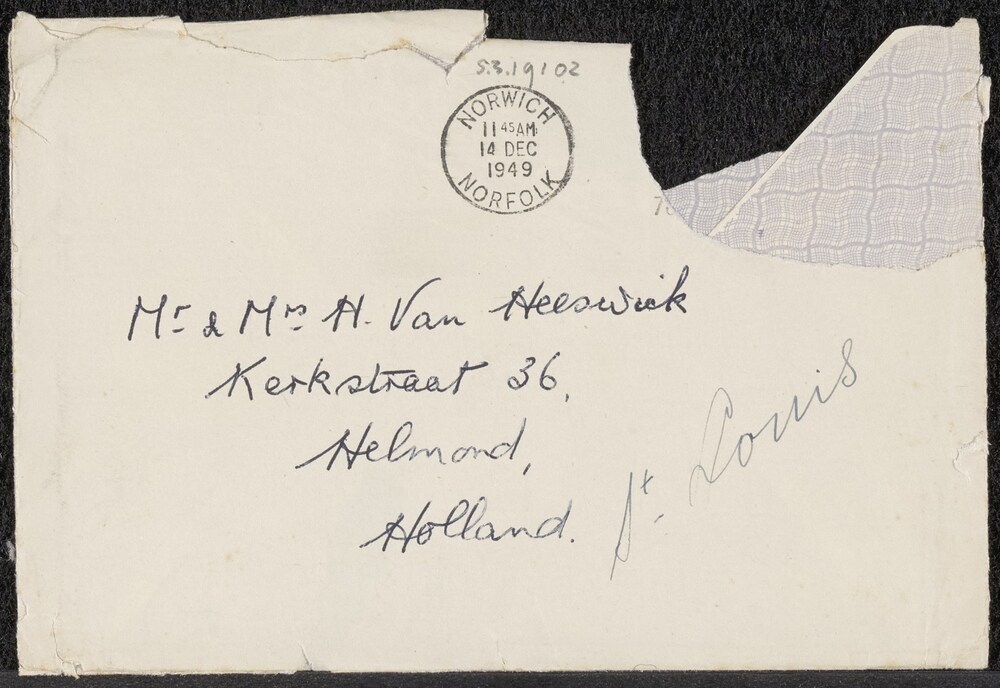 S.3.19102
NORWICH
11 45 AM
14 DEC
1949
NORFOLK
Mr & Mrs H. Van Heeswiek
Kerkstraat 36,
Helmond,
Holland.
St. Louis